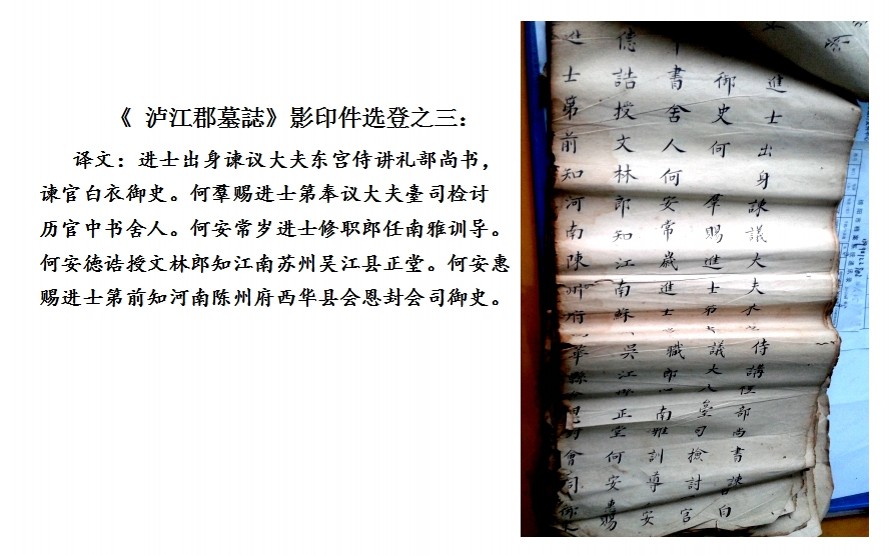 《 泸江郡墓誌》影印件选登之三：
译文：进士出身谏议大夫东宫侍讲礼部尚书，
谏官白衣御史。何羣赐进士第奉议大夫臺司检讨
历官中书舍人。何安常岁进士修职郎任南雅训导。
何安德诰授文林郎知江南苏州吴江县正堂。何安惠
赐进士第前知河南陈州府西华县会恩封会司御史。
進士出身諫議大夫 侍講 部尚書諫 白
御史何羣賜進士 議大 臺司檢討 官
書舍人何安常歲進士 職郎 南雅訓導 安
德誥授文林郎知江南蘇 吳江 正堂何安惠賜
進士第前知河南陳州府 華縣 恩 會司